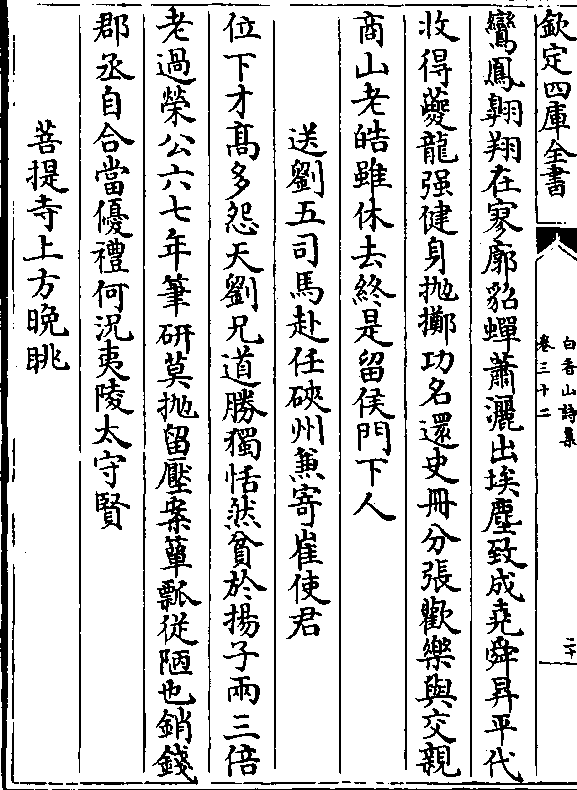 欽定四庫全書
白香山詩集
卷三十二
二十
鸞鳳翱翔在寥廓貂蟬蕭灑出埃塵致成堯舜昇平代
收得夔龍强健身抛擲功名還史冊分張歡樂與交親
商山老皓雖休去終是留侯門下人
送劉五司馬赴任硤州兼寄崔使君
位下才髙多怨天劉兄道勝獨恬然貧於揚子兩三倍
老過榮公六七年筆硏莫抛留壓案簞瓢從陋也銷錢
郡丞自合當優禮何況夷陵太守賢
菩提寺上方晚眺